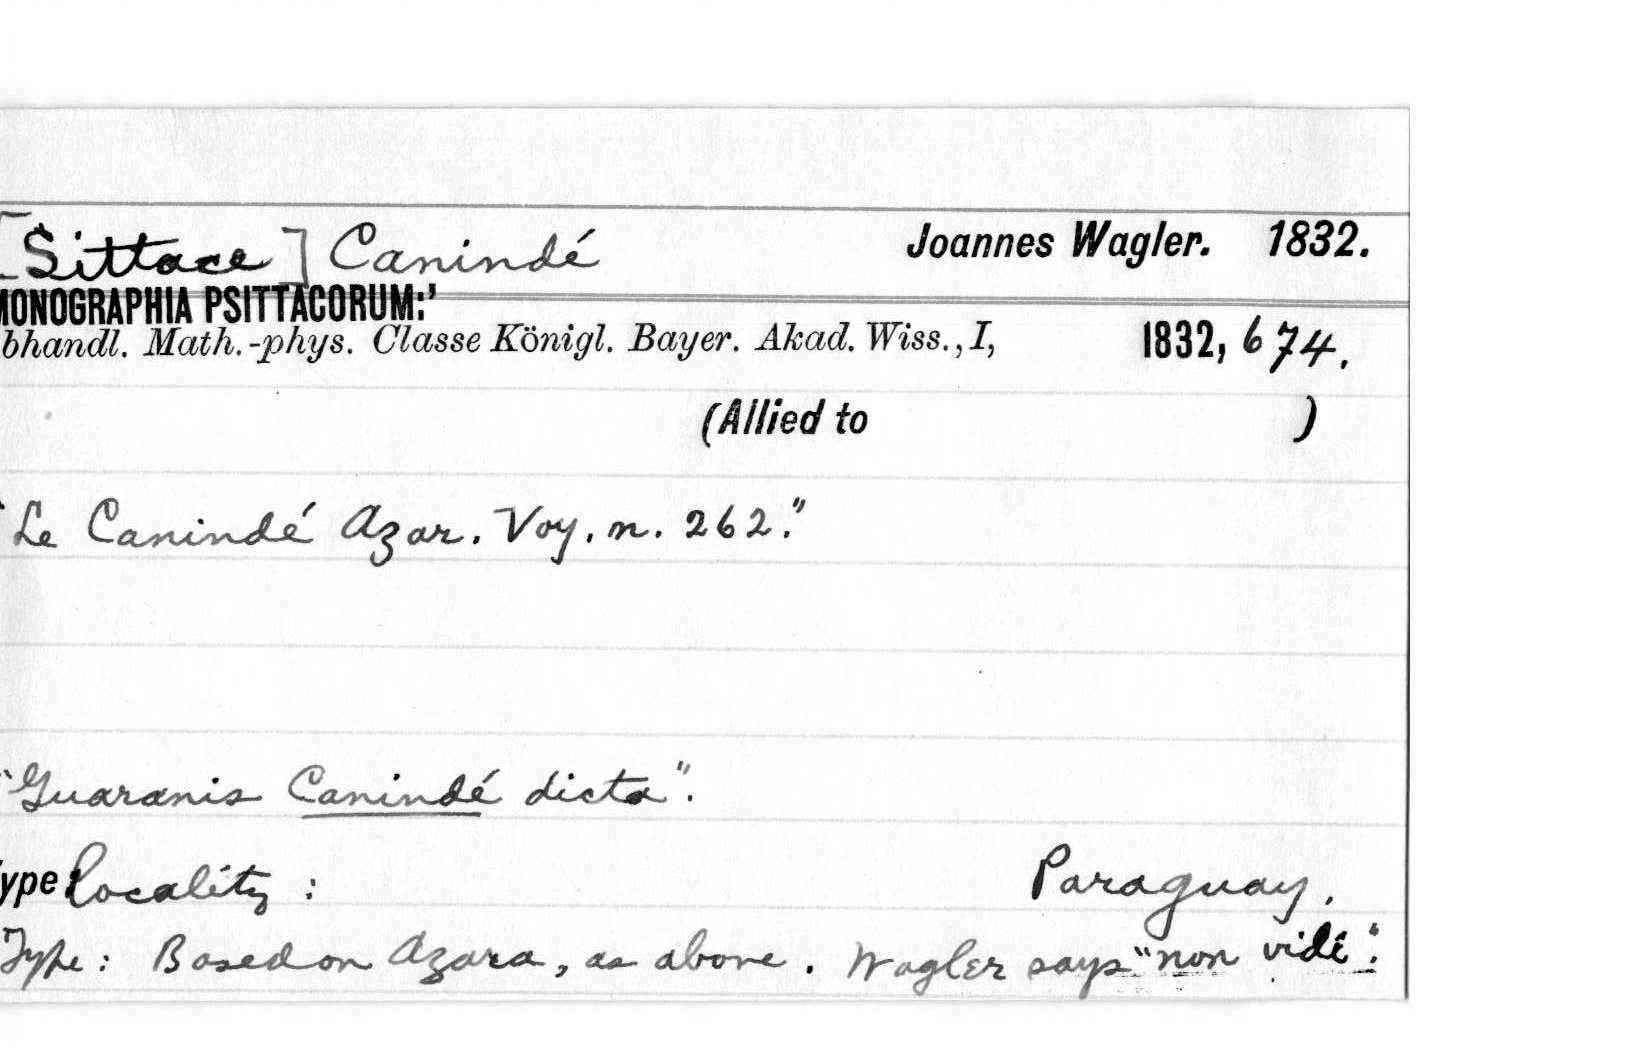 [Sittace] Canindé Joannes Wagler. 1832.
MONOGRAPHIA PSITTACORUM:'
bhandl. Math.-phys. Classe Königl. Bayer. Akad. Wiss., I, 1832, 674.
(Allied to )
"Le Canindé Azar. Voy. n. 262."
"Guaranis Canindé dicta".
ype locality: Paraguay.
Type: Based on Azara, as above. Wagler says "non vidi".